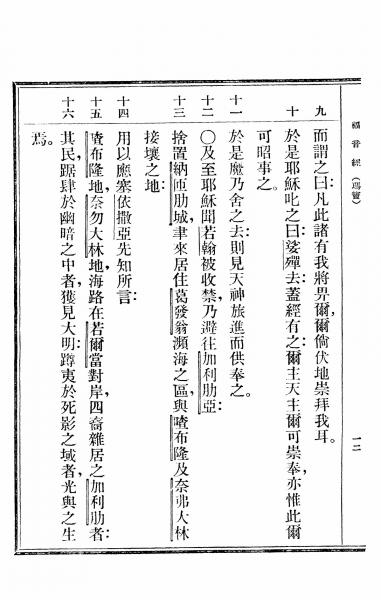 福音經（瑪竇）
一二
九 而謂之曰凡此諸有我將畀爾爾倘伏地崇拜我耳。
十 於是耶穌叱之曰娑殫去蓋經有之爾主天主爾可崇奉亦惟此爾
可昭事之。
十一 於是魔乃舍之去則見天神旅進而供奉之。
十二 ○及至耶穌聞若翰被收禁乃避往加利肋亞
十三 捨置納匝肋城聿來居住葛發翁瀕海之區與喳布隆及奈弗大林
接壤之地
十四 用以應塞依撒亞先知所言
十五 喳布隆地奈勿大林地海路在若爾當對岸四裔雜居之加利肋者
十六 其民踞肆於幽暗之中者獲見大明蹲夷於死影之域者光與之生
焉。